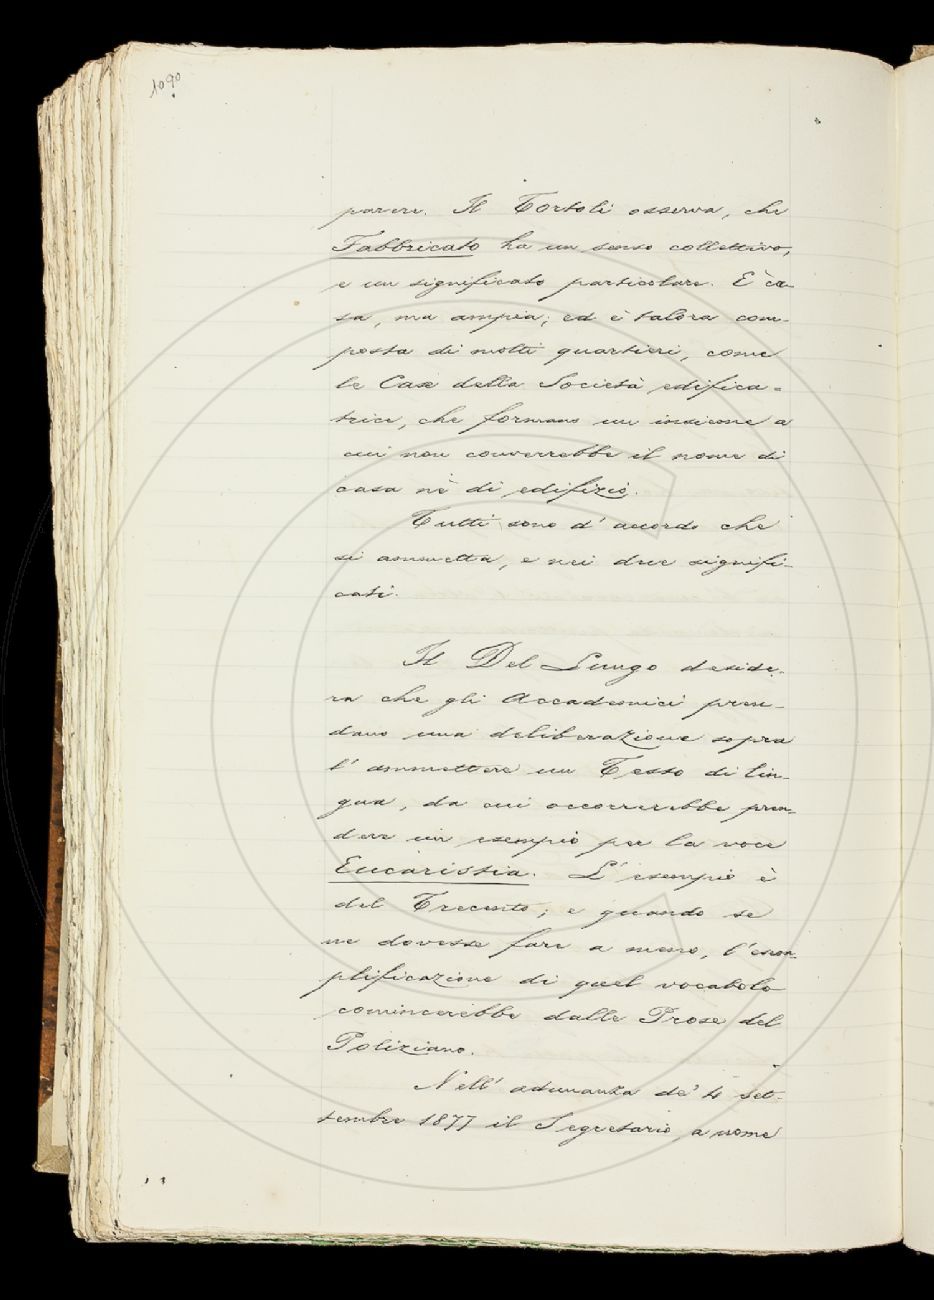 1090
parere. Il Tortoli osserva, che
Fabbricato ha un senso collettivo,
e un significato particolare. È ca-
sa, ma ampia; ed è talora com-
posta di molti quartieri, come
le Case della Società edifica-
trice, che formano un insieme a
cui non converrebbe il nome di
casa nè di edifizio.
Tutti sono d'accordo che
si ammetta, e nei due signifi-
cati.
Il Del Lungo deside-
ra che gli Accademici pren-
dano una deliberazione sopra
l'ammettere un Testo di lin-
gua, da cui occorrerebbe pren-
dere un esempio per la voce
Eucaristia. L'esempio è
del Trecento; e quando se
ne dovesse fare a meno, l'esem-
plificazione di quel vocabolo
comincerebbe dalle Prose del
Poliziano.
Nell'adunanza de' 4 set-
tembre 1877 il Segretario a nome